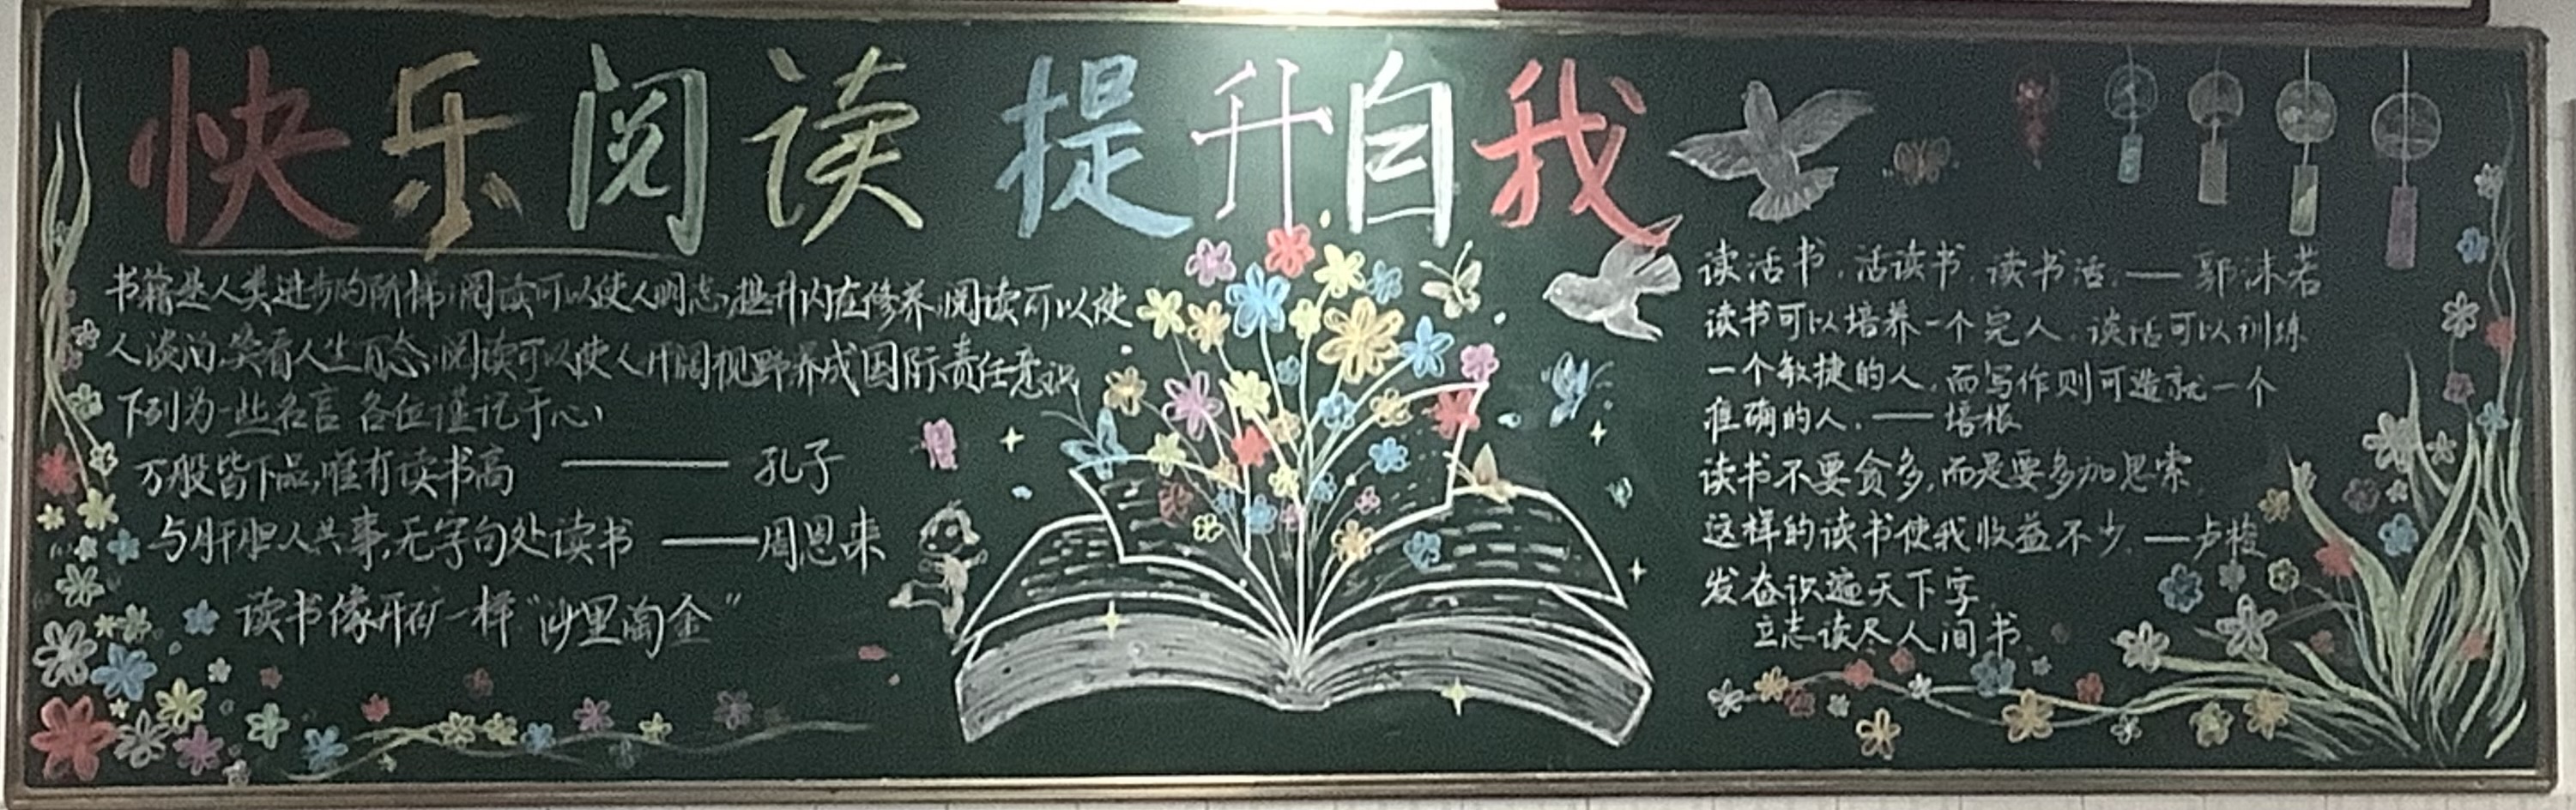 快乐阅读 提升自我
书籍是人类进步的阶梯,阅读可以使人明志,提升内在修养,阅读可以使
人淡泊,笑看人生百态,阅读可以使人开阔视野养成国际责任意识
下列为一些名言 各位谨记于心
万般皆下品,惟有读书高 —— 孔子
与肝胆人共事,无字句处读书 ——周恩来
读书像开矿一样“沙里淘金”
读活书,活读书,读书活.—— 郭沫若
读书可以培养一个完人,谈话可以训练
一个敏捷的人,而写作则可造就一个
准确的人.——培根
读书不要贪多,而是要多加思索
这样的读书使我收益不少.——卢梭
发奋识遍天下字
立志读尽人间书